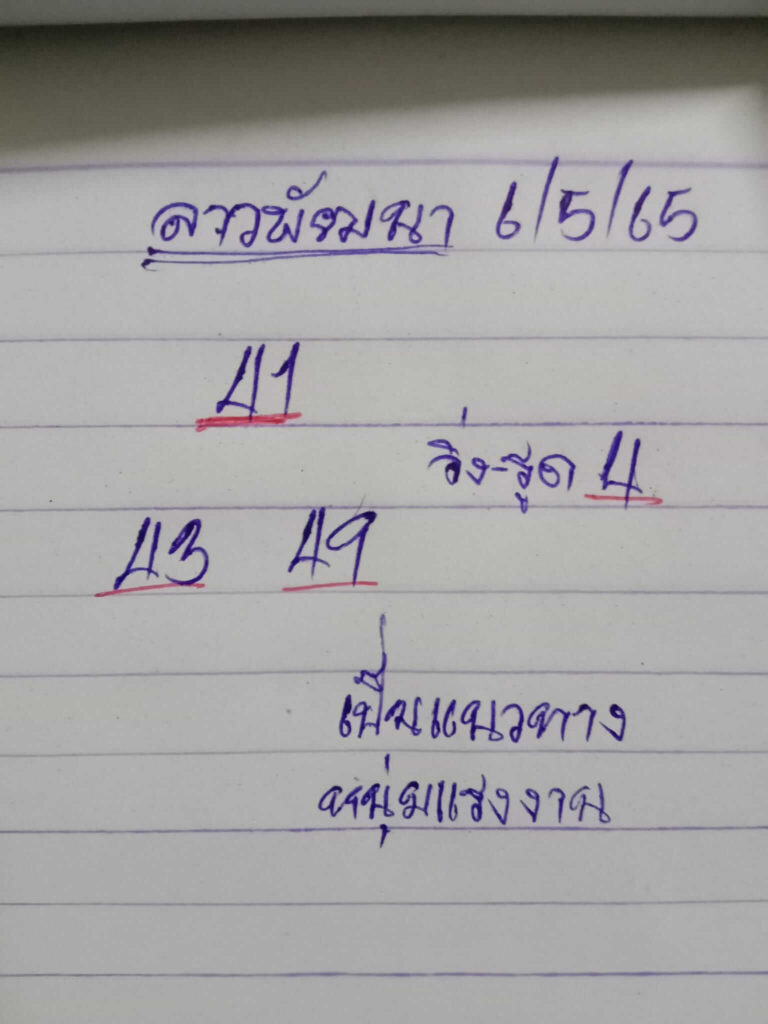 ลาวพัฒนา 6/5/65
41
วิ่ง-รูด 4
43 49
เป็นแนวทาง
หนุ่มแรงงาน